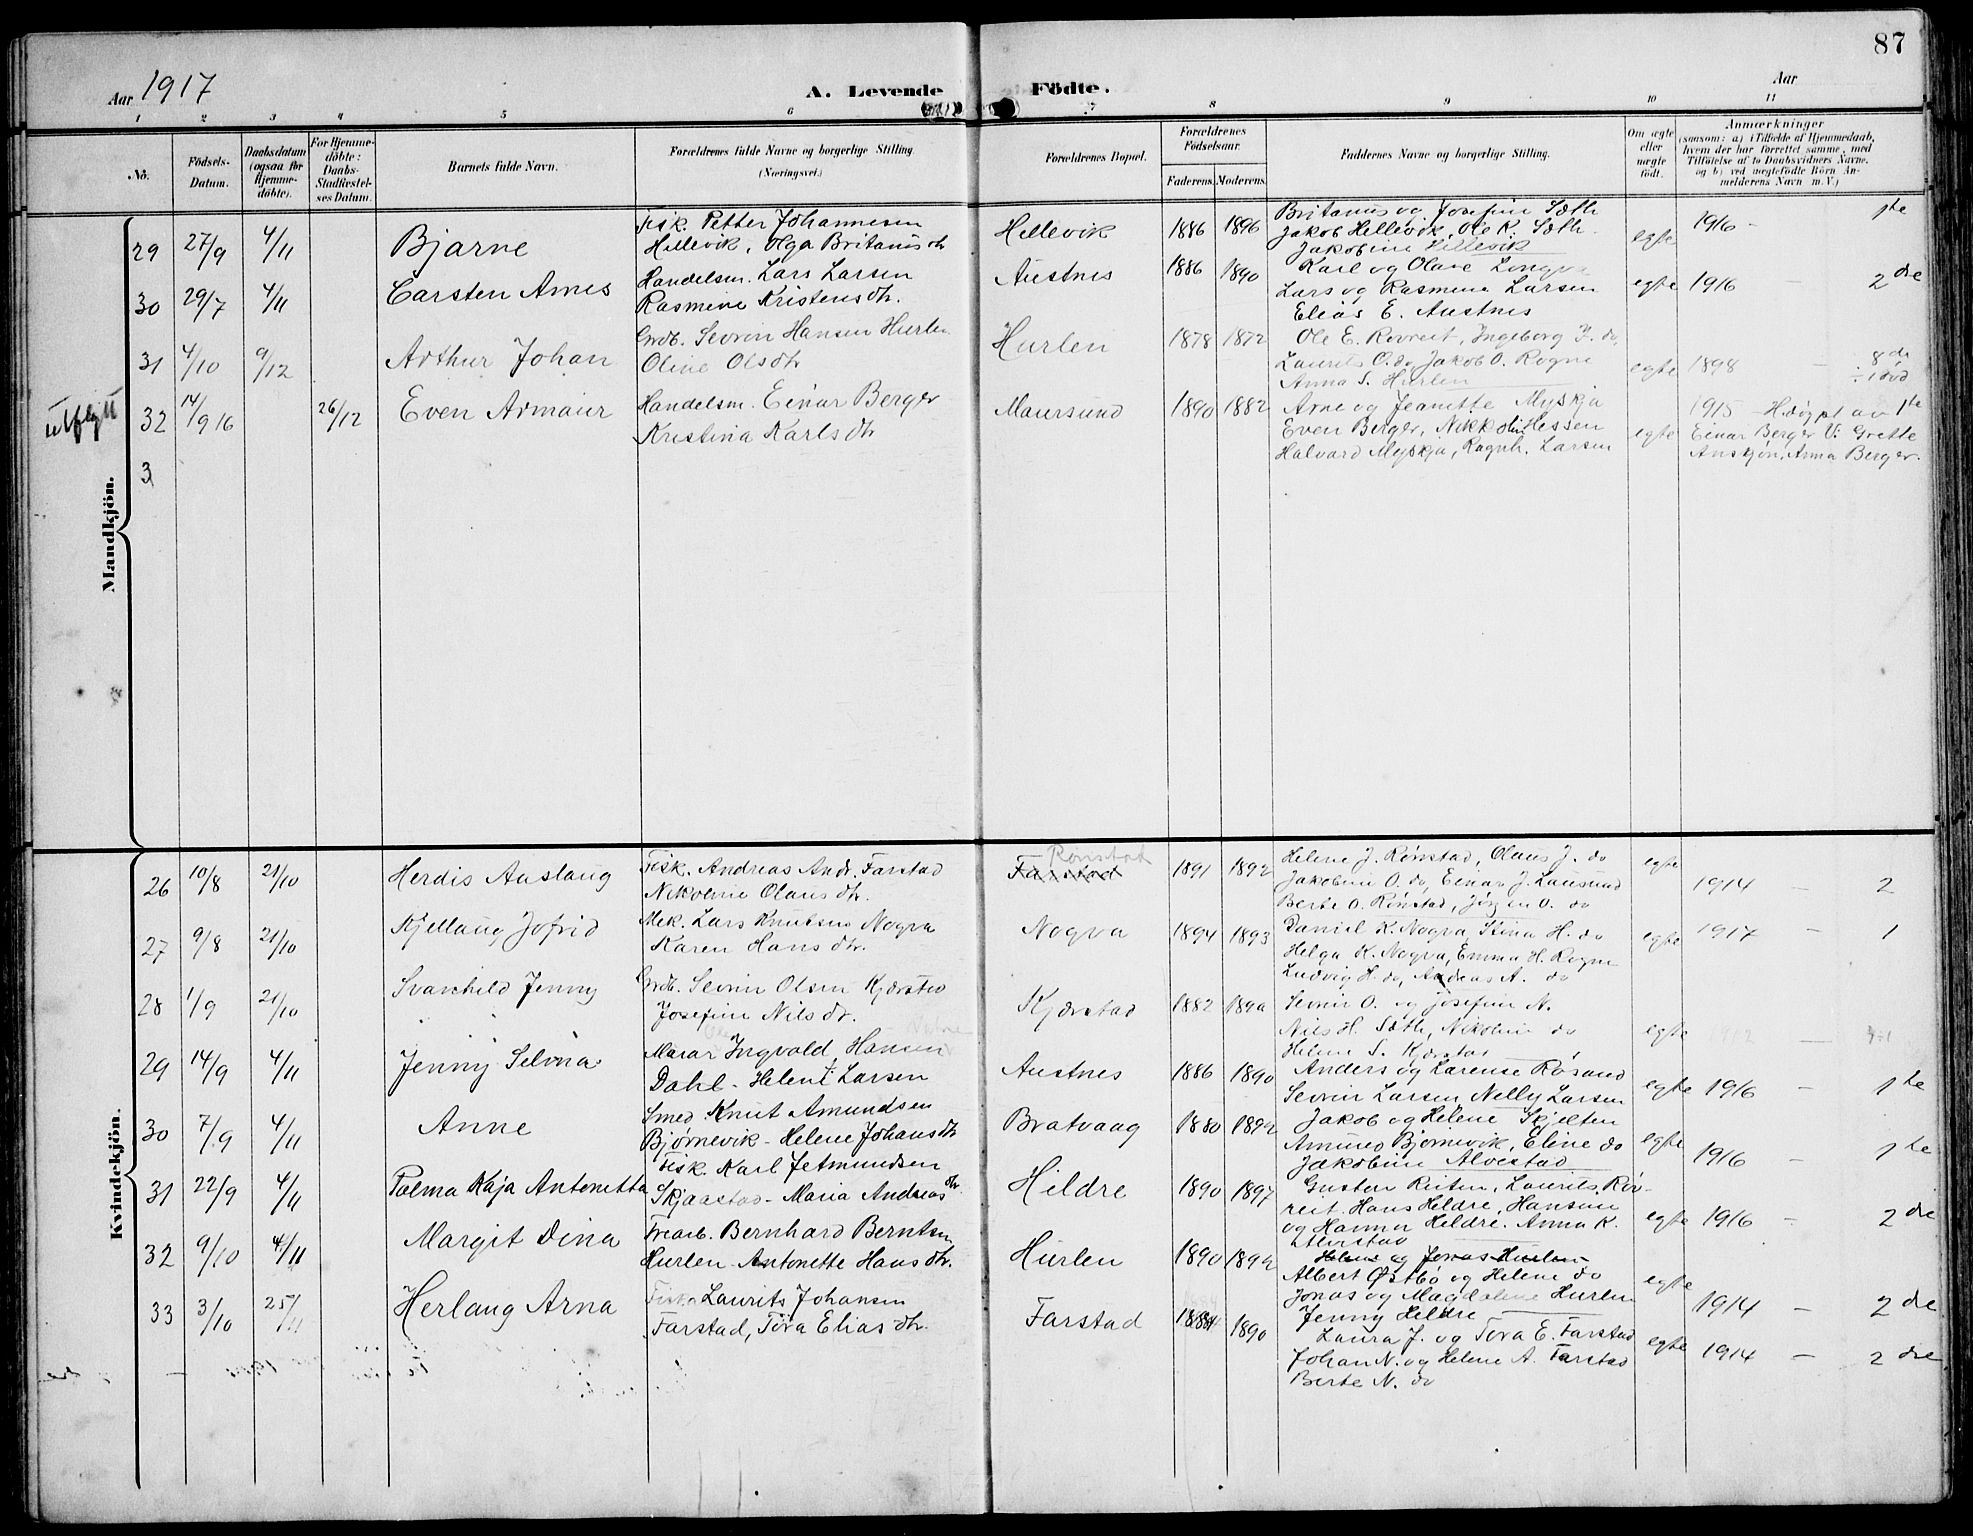 87
Aar 1917
A. Levende Födte.
Aar
1 2 3 4 5 6 7 8 9 10 11
No.
Födsels-Datum.
Daabsdatum (ogsaa for Hjemmedöbte).
For Hjemmedöbte: Daabs-Stadfæstelses Datum.
Barnets fulde Navn.
Forældrenes fulde Navne og borgerlige Stilling. (Næringsvei.)
Forældrenes Bopæl.
Forældrenes Födselsaar.
Faderens. Moderens.
Faddernes Navne og borgerlige Stilling.
Om ægte eller uægte födt.
Anmærkninger
(saasom: a) i Tilfælde af Hjemmedaab, hvem der har forrettet samme, med Tilföielse af to Daabsvidners Navne, og b) ved uægtefödte Börn Anmelderens Navn m. V.)
Mandkjön.
29 27/9 4/11 Bjarne
Fisk. Petter Johannesen
Hellevik, Olga Britanus dtr
Hellevik 1886 1896
Britanus og Josefine Sæth
Jakob Hellevik, Ole K. Sæth
Jakobine Hellevik
egte 1916 - 1te
30 29/7 4/11 Carsten Arnes
Handelsm. Lars Larsen
Rasmine Kristens dtr.
Austnes 1886 1890
Karl og Olave Longva
Lars og Rasmine Larsen
Elias E. Austnes
egte 1916 - 2dre
31 4/10 9/12 Arthur Johan
Grdb. Sevrin Hansen Hurlen
Oline Ols dtr
Hurlen 1878 1872
Ole E. Rovreit, Ingeborg J. do,
Laurits O. do, Jakob O. Rogne
Anna S. Hurlen
egte 1898 - 8de
÷ 1 død
utflytt
32 14/9 16 26/12 Even Armauer
Handelsm. Einar Berger
Kristina Karls dtr
Maursund 1890 1882
Arne og Jeanette Myskja
Even Berger, Nikkoline Hessen
Halvard Myskja, Ragnh. Larsen
egte
1915 - H.døpt av 1te
Einar Berger V: Grette
Anskjøn, Anna Berger.
3
Kvindekjön.
26 10/8 21/10 Herdis Auslaug
Fisk. Andreas Andr. Farstad
Nikoline Olaus dtr.
Rønstad
Farstad 1891 1892
Helene J. Rønstad, Olaus J. do
Jakobine O. do, Einar J. Lausund
Berte O. Rønstad, Jørgen O. do
egte 1914 - 2
27 9/8 21/10 Kjellaug Jofrid
Mek. Lars Knutsen Nogva
Karen Hans dtr.
Nogva 1894 1893
Daniel K. Nogva, Stina H. do
Helga K. Nogva, Emma H. Rogne
Ludvig H. do, Andreas A. do
egte 1917 - 1
28 1/9 21/10 Svanhild Jenny
Grdb. Sevrin Olsen Kjærstad
Josefine Nils dr.
Kjærstad 1882
Sevrin O. og Josefine N.
Niels H. Sæth, Nikoline do
Helene S. Kjærstad
egte
29 14/9 4/11 Jenny Selvina
Murar Ingvald Hansen
Dahl - Helene Larsen
Austnes 1886 1890
Anders og Larense Røsand
Sevrin Larsen, Nelly Larsen
egte 1916 - 1te
30 7/9 4/11 Anne
Smed Knut Amundsen
Bjørnevik - Helene Johans dtr
Bratvaag 1880
Jakob og Helene Skjelten
Amund Bjørnevik, Eline do
Jakobine Alvestad
egte 1916 - 1te
31 22/9 4/11 Palma Kaja Antonetta
Fisk. Karl Jetmundsen
Skjaastad - Maria Andreas dtr.
Hildre 1890 1897
Gustav Reiten, Laurits Røv-
reit, Hans Hildre, Hansine
og Hanna Hildre. Anna K.
Alvestad
egte 1916 - 2dre
32 9/10 4/11 Margit Dina
Frearb. Bernhard Berntsen
Hurlen - Antonette Hans dtr.
Hurlen 1890
Helene og Jonas Hurlen
Albert Østbø og Helene do
Jonas og Magdalene Hurlen
Jenny Heldre
egte 1914 - 2dre
33 3/10 25/11 Herlaug Arna
Fisk Laurits Johansen
Farstad, Tora Elias dtr.
Farstad 1884 1890
Laura J. og Tora E. Farstad
Johan N. og Helene A. Farstad
Berte N. do
egte 1914 - 2dre